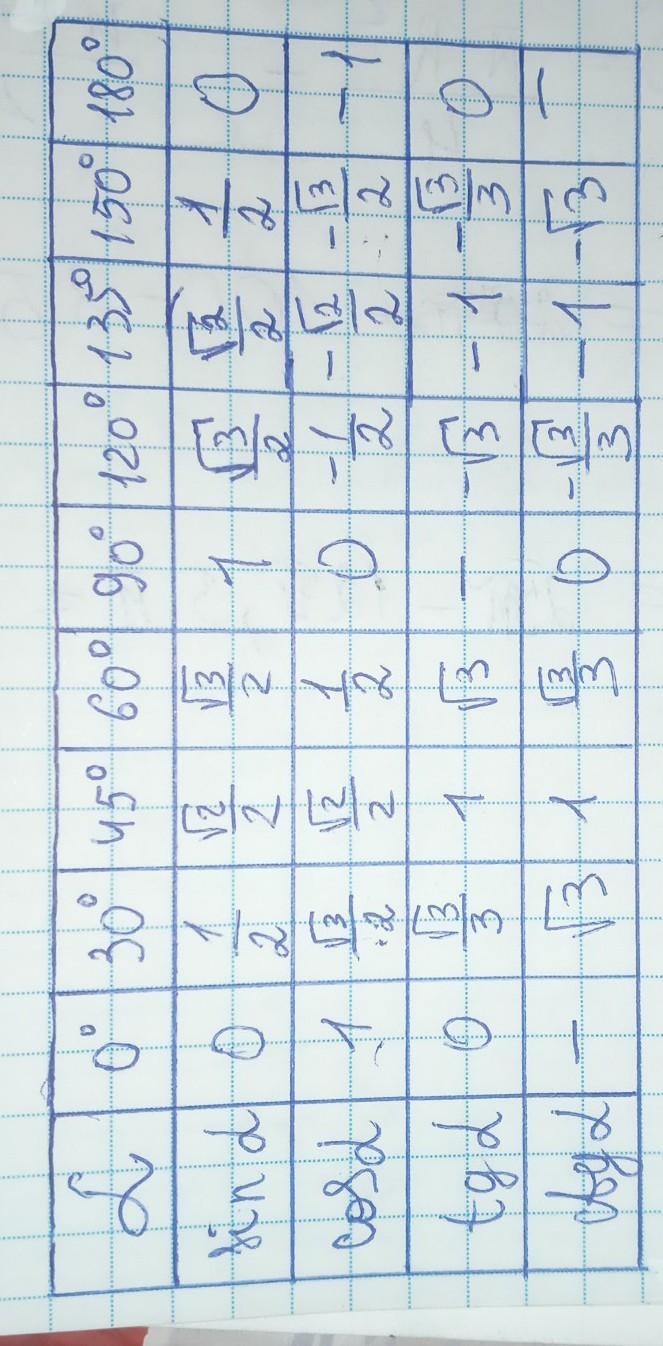 α 0° 30° 45° 60° 90° 120° 135° 150° 180°
sin α 0 1/2 √2/2 √3/2 1 √3/2 √2/2 1/2 0
cos α 1 √3/2 √2/2 1/2 0 -1/2 -√2/2 -√3/2 -1
tg α 0 √3/3 1 √3 — -√3 -1 -√3/3 0
ctg α — √3 1 √3/3 0 -√3/3 -1 -√3 —